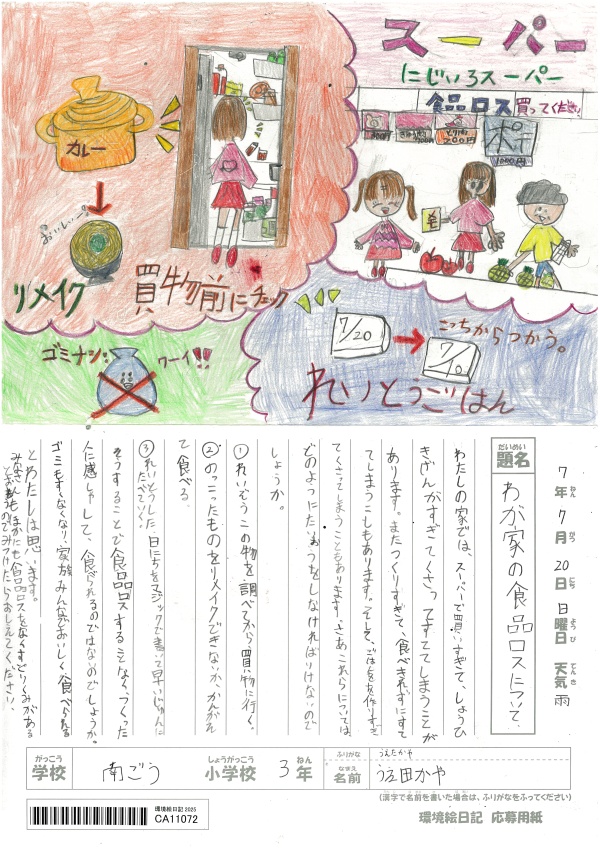 スーパー
にじいろスーパー
食品ロス買ってください
200円
ポテ
1000円
カレー
おいしいー!
リメイク
買物前にチェック
ゴミナシ!!
ワーイ!!
7/20
7/10
こっちからつかう。
れいとうごはん
7年7月20日日曜日天気雨
だいめい
題名
わが家の食品ロスについて、
わたしの家では、スーパーで買いすぎて、しょうひ
きげんがすぎてくさってすててしまうことが
あります。またつくりすぎて、食べきれずにすて
てしまうこもあります。そして、ごはんを作りすぎ
てくさってしまうこともあります。さあこれらについては
どのよつにたいおうをしなければいけないので
しょうか。
①れいぞうこの物を調べてから買い物に行く。
②のっこったものをリメイクできないか、かんがえ
て食べる。
③れいとうした日にちをマジックで書いて早いじゅんに
たべていく。
そうすることで食品ロスすることなく、つくった
人に感しゃして、食べられるのではないのでしょうか。
ゴミもすくなくなり、家族みんながおいしく食べられる
とわたしは思います。
みなさんもほかにも食品ロスをなくすとりくみがある
とおもうのでみつけたらおしえてください。
がっこう
学校
南ごう
しょうがっこう
小学校
3年
ふりがな
うえたかや
なまえ
名前
上田かや
(漢字で名前を書いた場合は、ふりがなをふってください)
環境絵日記 2025
CA11072
環境絵日記 応募用紙